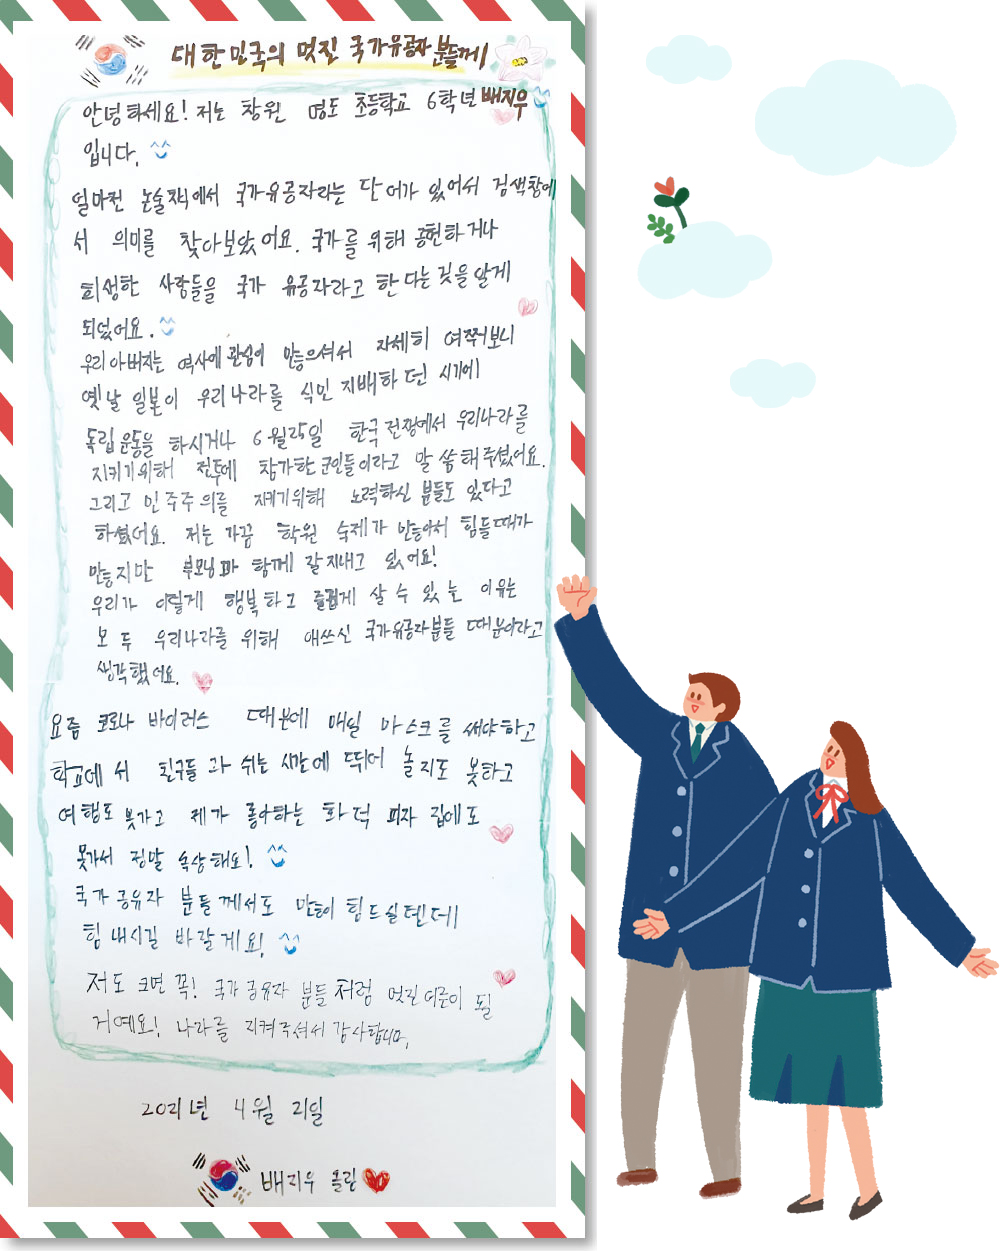 대한민국의 멋진 국가유공자 분들께
안녕하세요! 저는 창원 명도 초등학교 6학년 배지우
입니다.
얼마전 논술지에서 국가유공자라는 단어가 있어서 검색창에
서 의미를 찾아보았어요. 국가를 위해 공헌하거나
희생한 사람들을 국가 유공자라고 한다는 것을 알게
되었어요.
우리 아버지는 역사에 관심이 많으셔서 자세히 여쭈어보니
옛날 일본이 우리나라를 식민 지배하던 시기에
독립운동을 하시거나 6월25일 한국 전쟁에서 우리나라를
지키기위해 전투에 참가한 군인들이라고 말씀해주셨어요.
그리고 민주주의를 지키기위해 노력하신 분들도 있다고
하셨어요. 저는 가끔 학원 숙제가 많아서 힘들때가
많지만 부모님과 함께 잘지내고 있어요!
우리가 이렇게 행복하고 즐겁게 살 수 있는 이유는
모두 우리나라를 위해 애쓰신 국가유공자분들 때문이라고
생각했어요.
요즘 코로나 바이러스 때문에 매일 마스크를 써야하고
학교에서 친구들과 쉬는 시간에 뛰어 놀지도 못하고
여행도 못가고 제가 좋아하는 화덕 피자 집에도
못가서 정말 속상해요!
국가공유자 분들께서도 많이 힘드실텐데
힘내시길 바랄게요!
저도 크면 꼭! 국가공유자 분들처럼 멋진어른이 될
거예요! 나라를 지켜주셔서 감사합니다.
2021년 4월 21일
배지우 올림